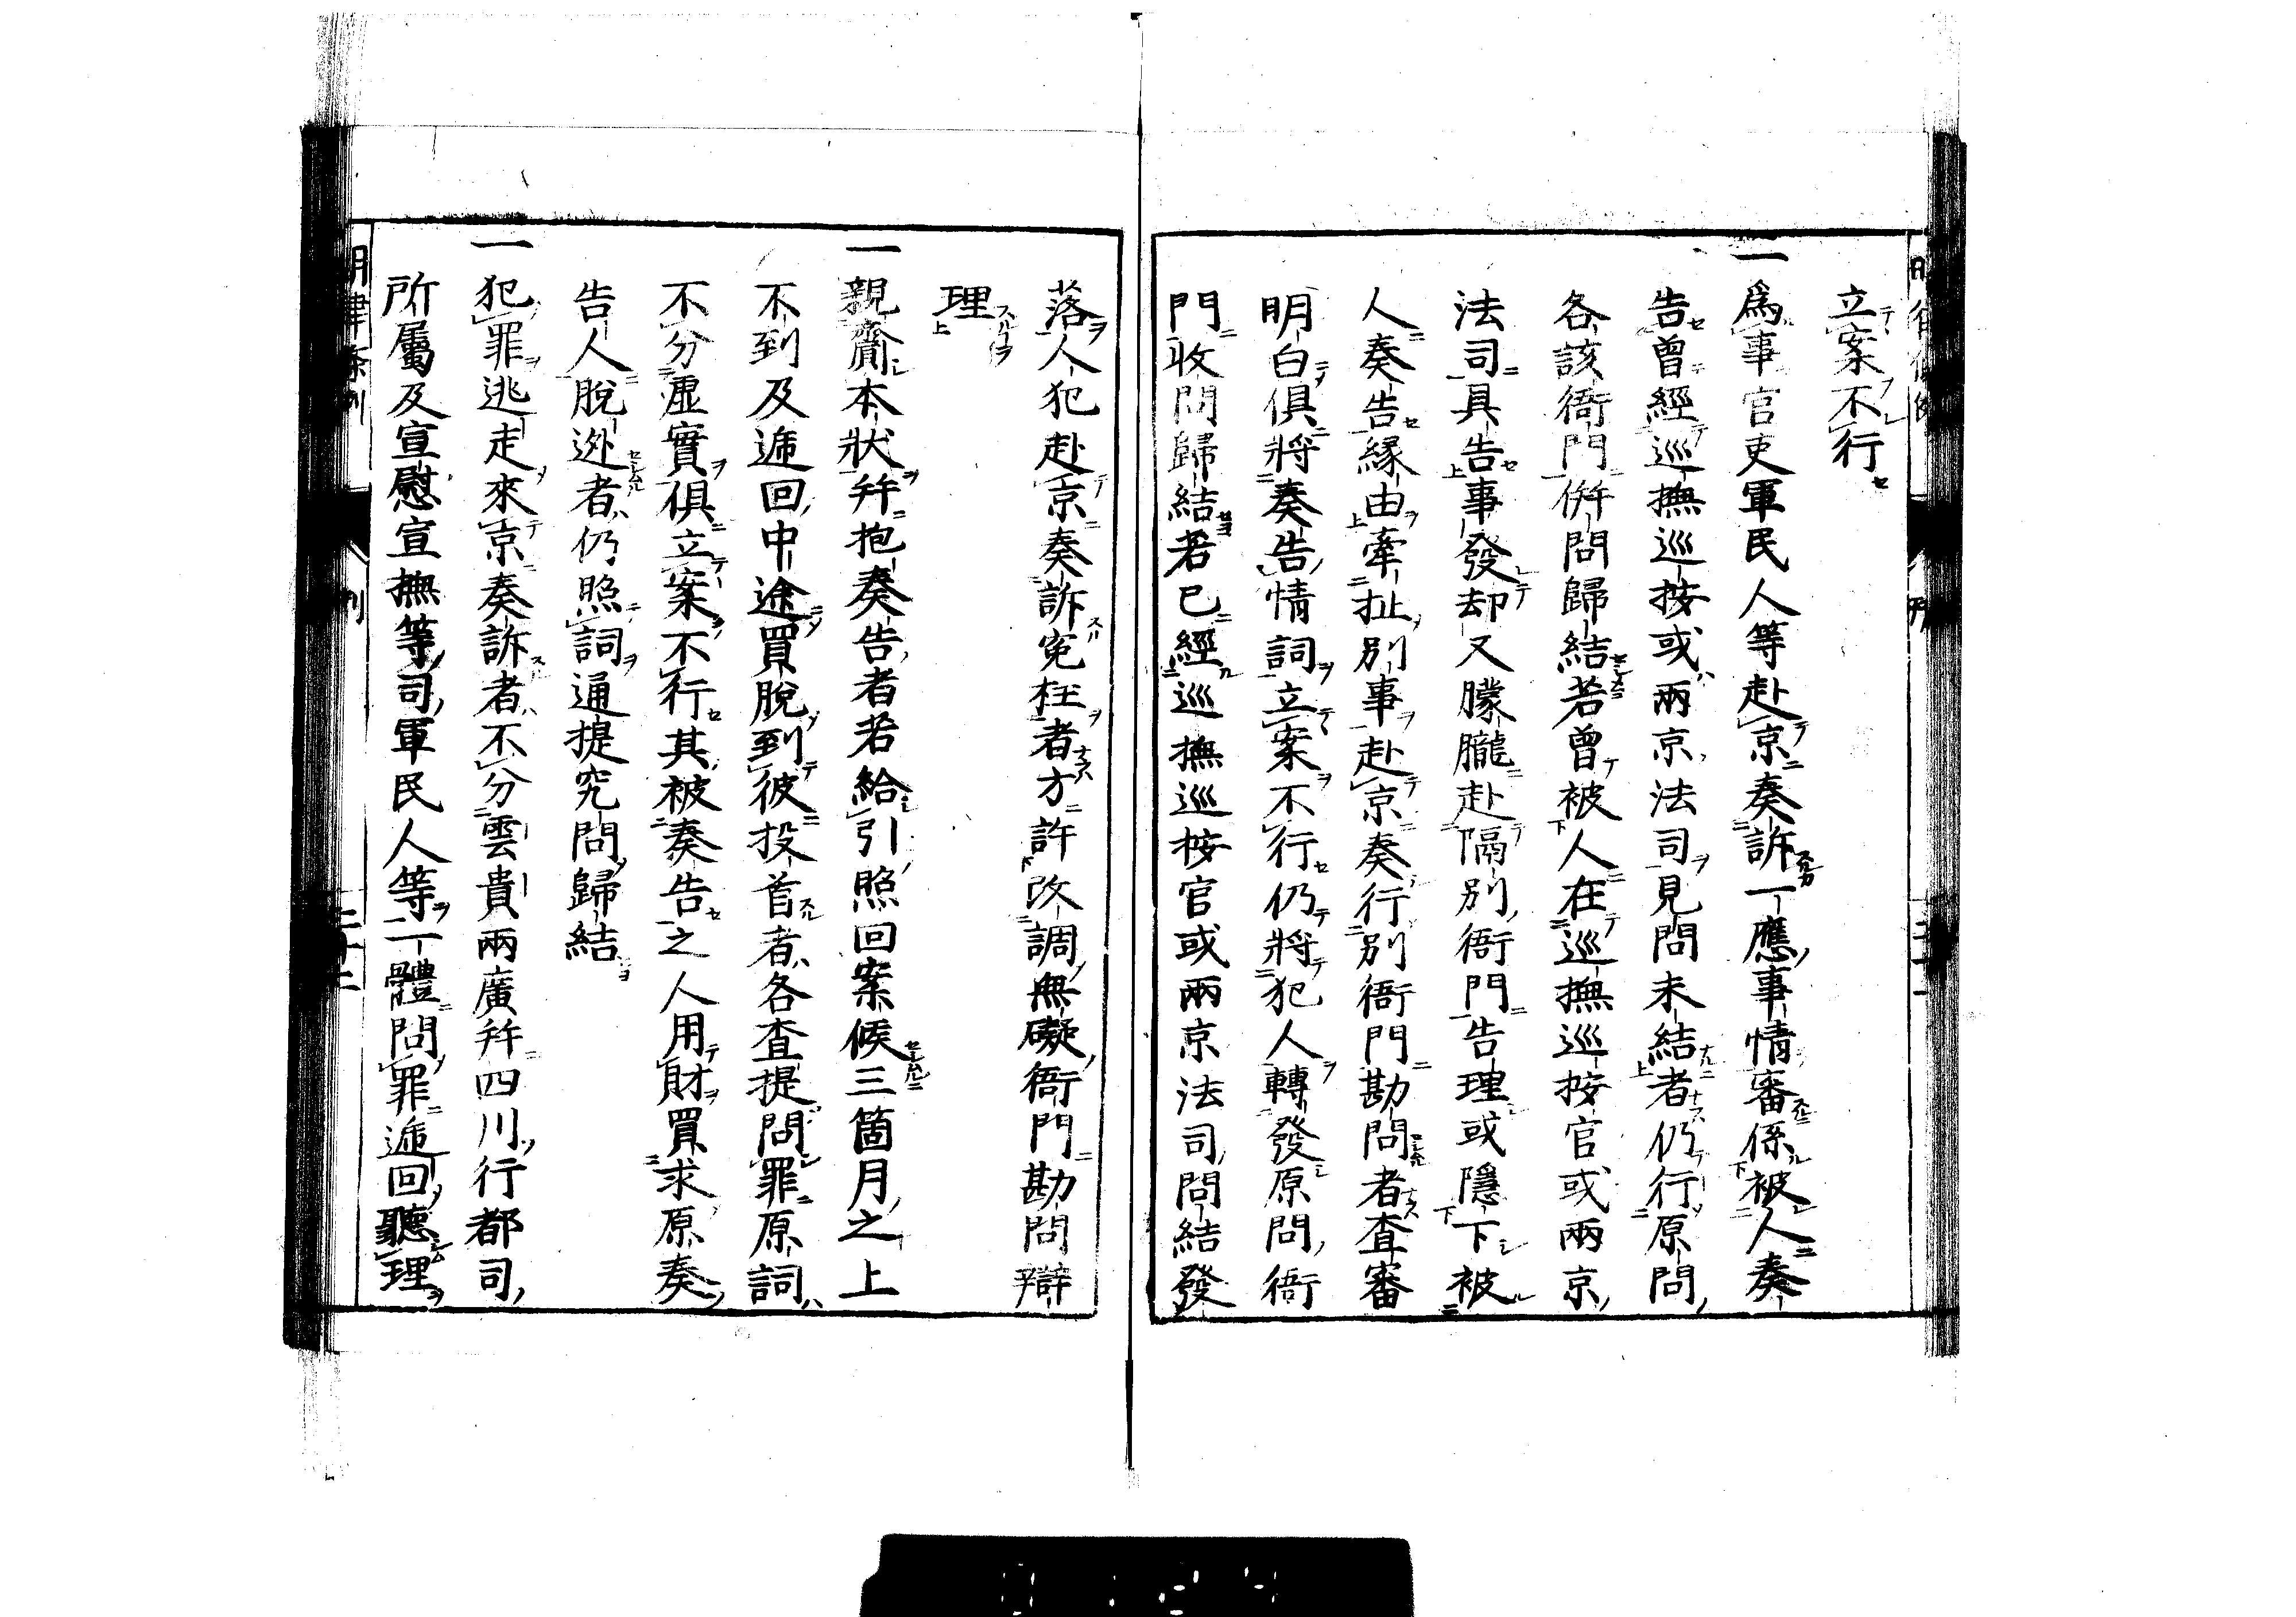 立案不行
一爲事官吏軍民人等赴京奏訴一應事情審係被人奏
告曾經巡撫巡按或兩京法司見問未結者仍行原問
各該衙門併問歸結若曾被人在巡撫巡按官或兩京
法司具告事發却又朦朧赴隔別衙門告理或隱下被
人奏告緣由牽扯別事赴京奏行別衙門勘問者查審
明白俱將奏告情詞立案不行仍將犯人轉發原問衙
門收問歸結若已經巡撫巡按官或兩京法司問結發
落人犯赴京奏訴冤枉者方許改調無礙衙門勘問辯
理
一親齎本狀并抱奏告者若給引照回案候三箇月之上
不到及遞回中途買脫到彼投首者各查提問罪原詞
不分虛實俱立案不行其被奏告之人用財買求原奏
告人脫逃者仍照詞通提究問歸結
一犯罪逃走來京奏訴者不分雲貴兩廣并四川行都司
所屬及宣慰宣撫等司軍民人等一體問罪遞回聽理
明律條例